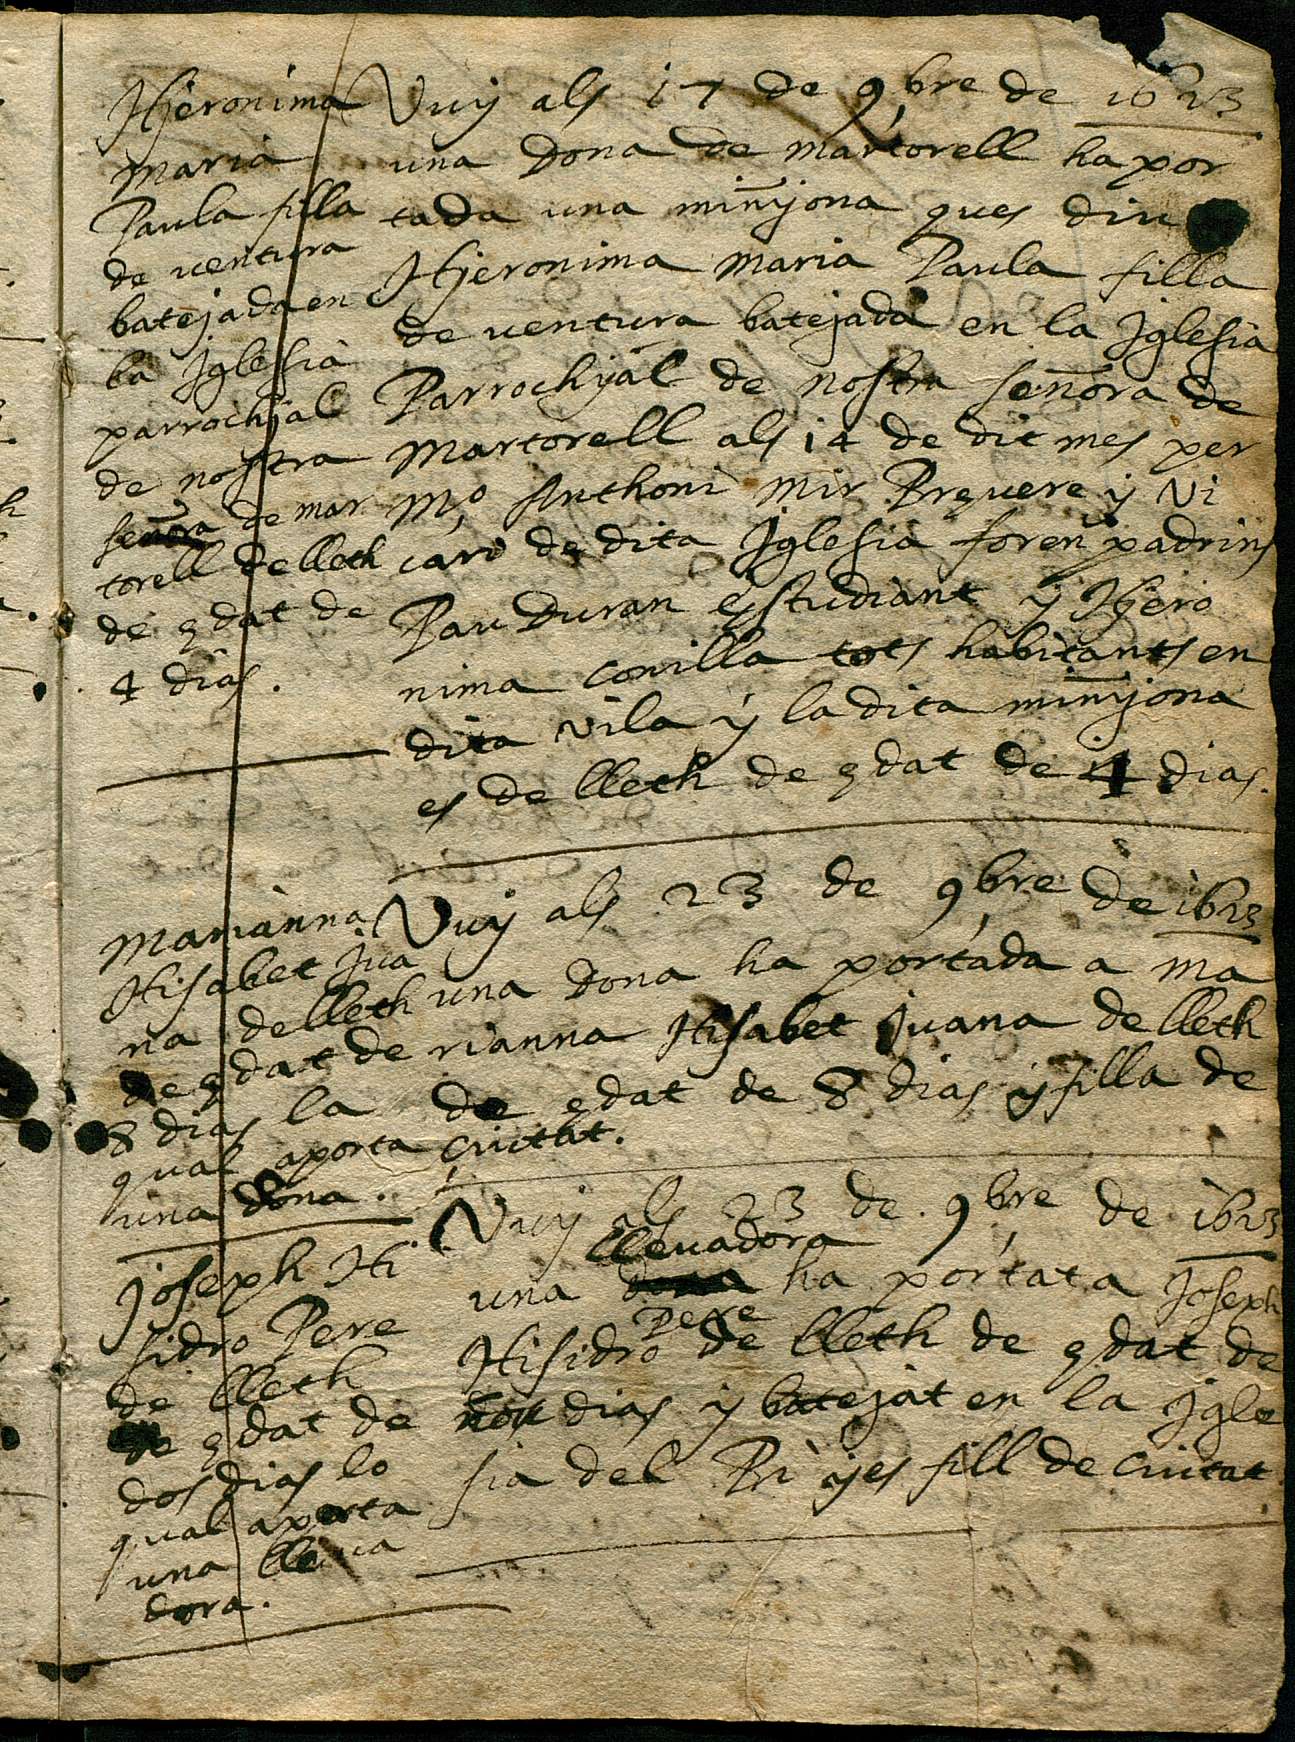 Hjeronima
maria
Paula filla
de ventura
batejada en
la Jglesia
parrochjal
de nostra
señora de mar
torell de lleth
de edat de
4 dias.
Vuy als 17 de 9bre de 1623
una dona de martorell ha por
tada una miñyona ques diu
Hjeronima maria Paula filla
de ventura batejada en la Jglesia
Parrochyal de nostra señora de
Martorell als 14 de dit mes per
Mo Anthoni Mir Prevere y Vi
cari de dita Jglesia foren padrins
Pau Duran estudiant y Hjero
nima conilla tots habitants en
dita vila y la dita miñyona
es de lleth de edat de 4 dias.
Marianna
Hisabet Jua
na de lleth
de edat de
8 dias la
qual aporta
una dona.
Vuy als 23 de 9bre de 1623
una dona ha portada a ma
rianna Hisabet Juana de lleth
de edat de 8 dias y filla de
Ciutat.
Joseph Hi
sidro Pere
de lleth
de edat de
dos dias lo
qual aporta
una lleva
dora.
Vuy als 23 de 9bre de 1623
llevadora
una dona ha portat a Joseph
Pere
Hisidro de lleth de edat de
dias y batejat en la Jgle
sia del Pi y es fill de Ciutat.